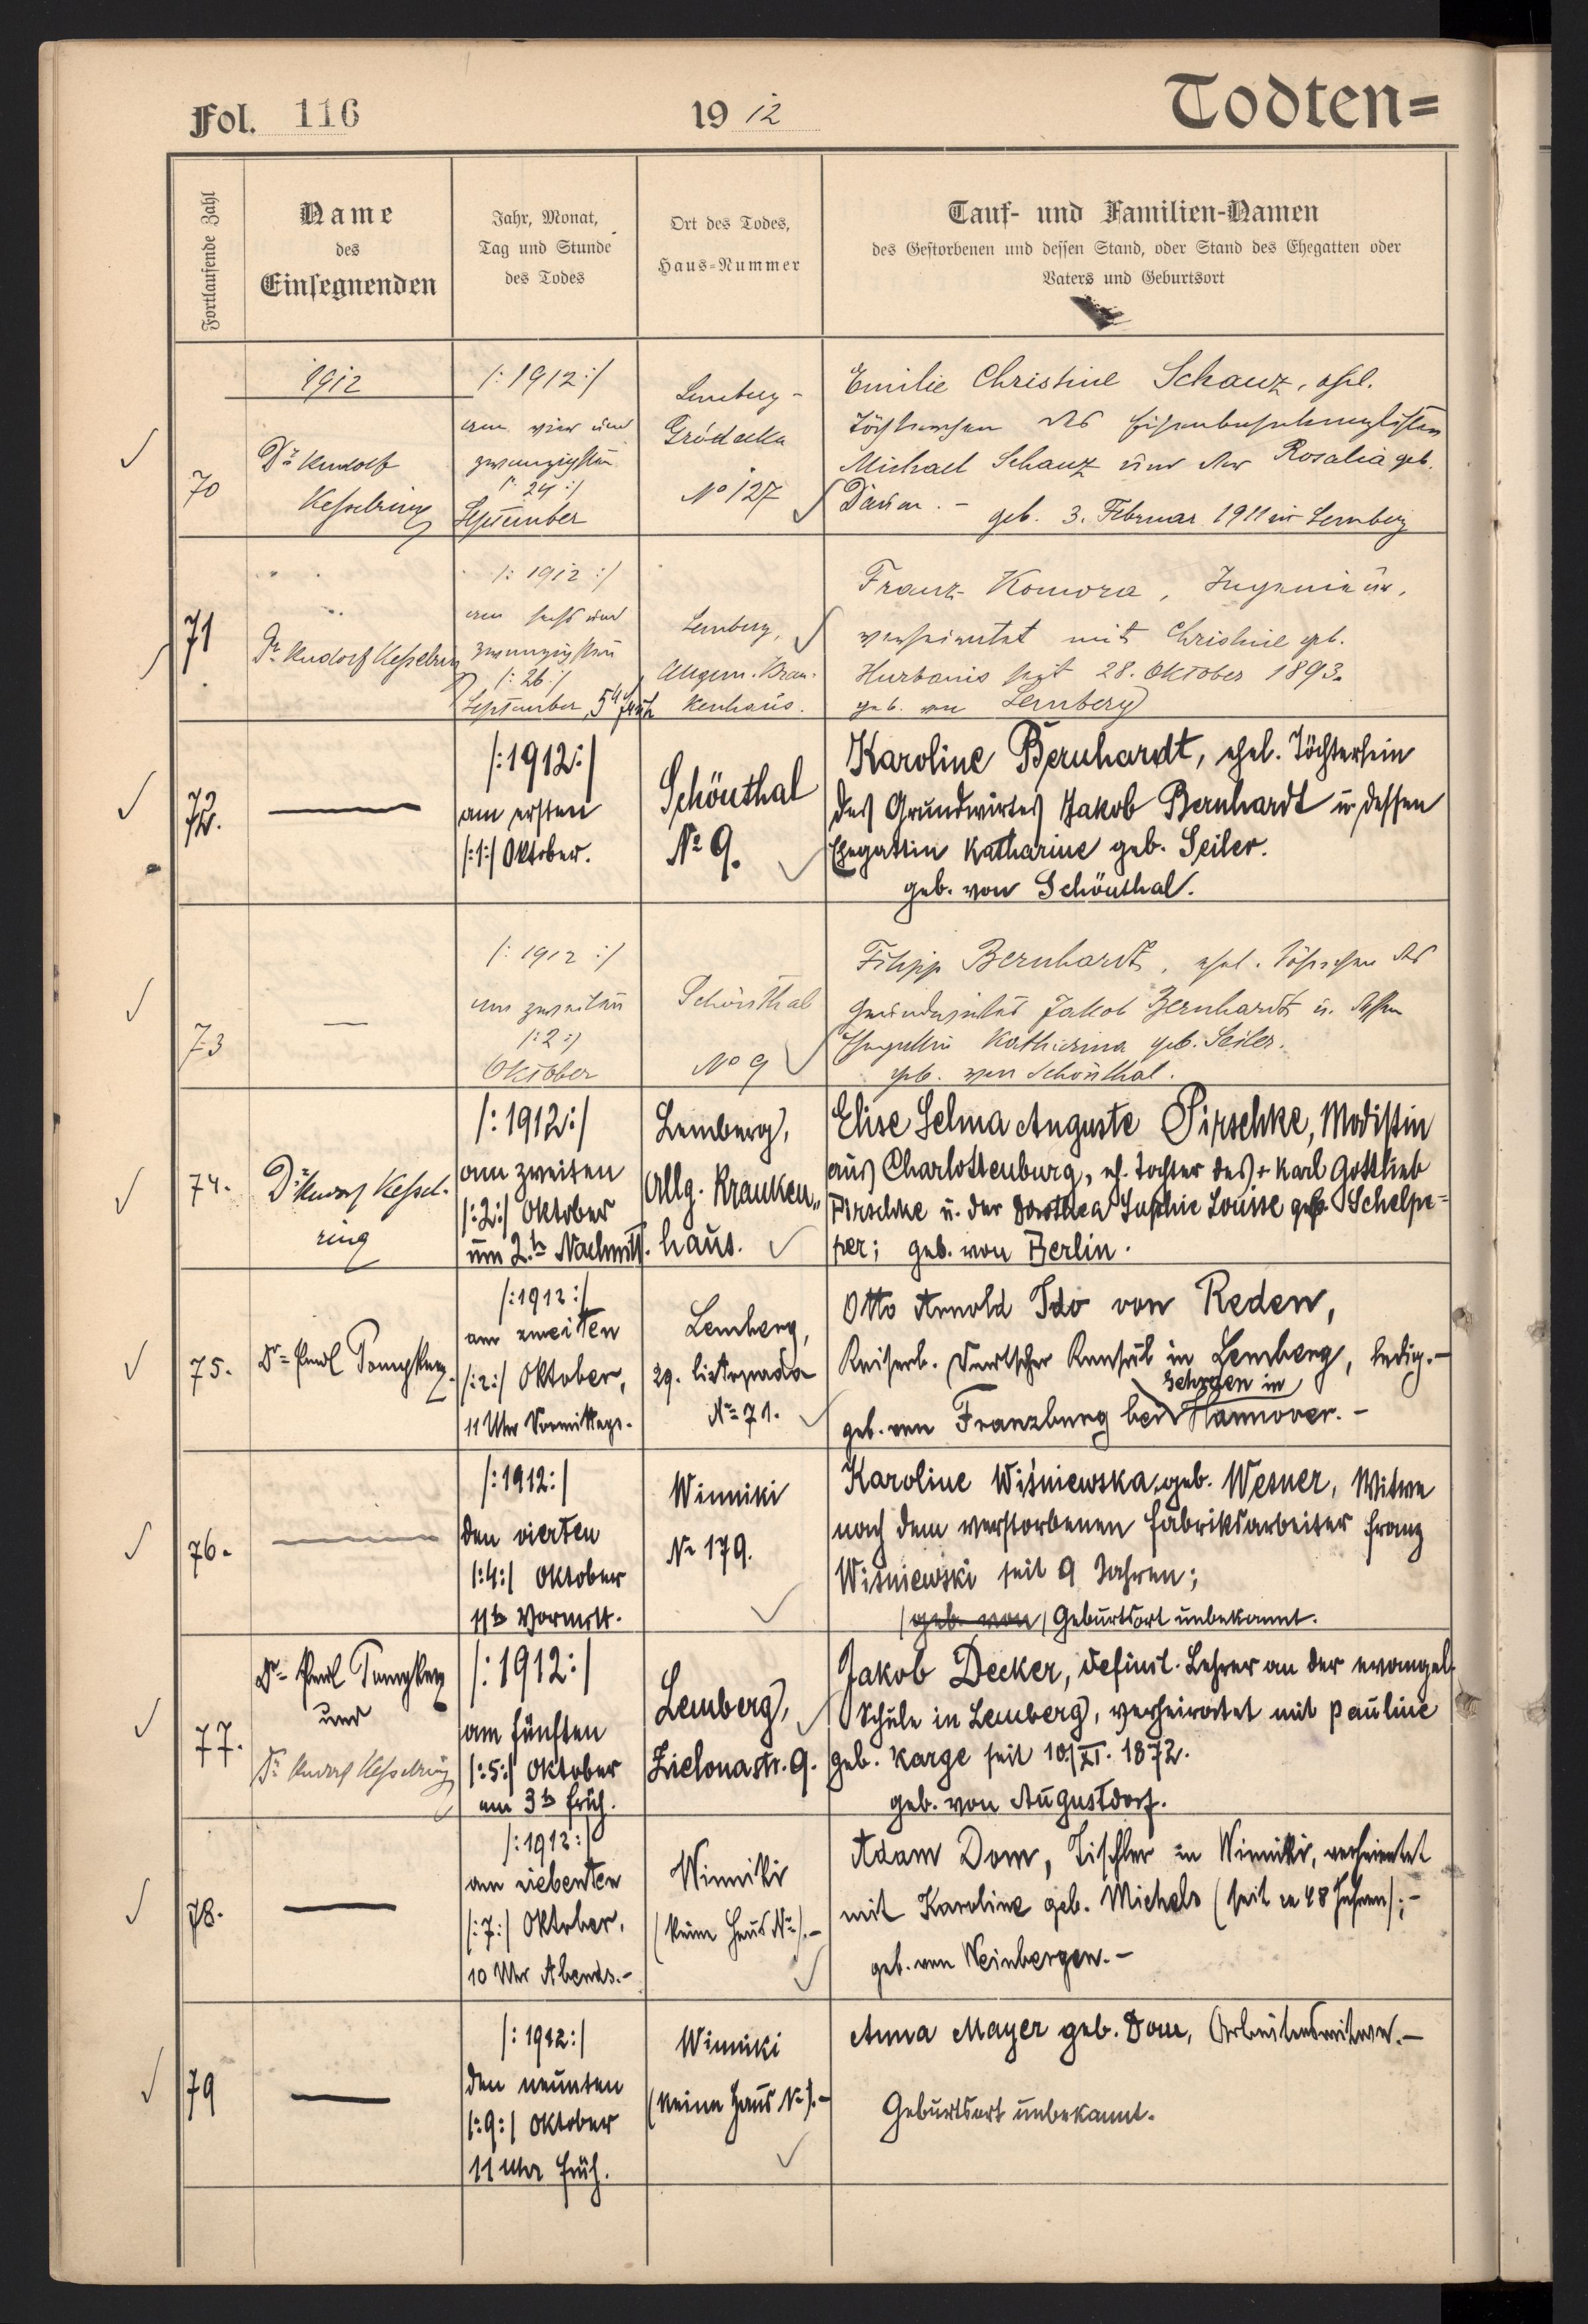 Fol. 116
1912
Todten=
Fortlaufende Zahl
Name
des
Einsegnenden
Jahr, Monat,
Tag und Stunde
des Todes
Ort des Todes,
Haus-Nummer
Tauf- und Familien-Namen
des Gestorbenen und dessen Stand, oder Stand des Ehegatten oder
Vaters und Geburtsort
70
1912
Dr. Rudolf
Kesselring
/: 1912 :/
am vier und
zwanzigsten
/: 24 :/
September
Lemberg-
Gródecka
No 127
Emilie Christine Schanz, ehel.
Töchterchen des
Michael Schanz und der Rosalia geb.
geb. 3. Februar 1911 in Lemberg
71
Dr. Rudolf Kesselring
/: 1912 :/
am sechs und
zwanzigsten
/: 26 :/
September, 5h früh
Lemberg,
Allgem. Kran-
kenhaus.
Franz Komora, Ingenieur,
verheiratet mit Christine geb.
Hurbanis seit 28. Oktober 1893.
geb. von Lemberg
72.
/: 1912 :/
am ersten
/:1:/ Oktober.
Schönthal
No 9.
Karoline Bernhardt, ehel. Töchterlein
des Grundwirtes Jakob Bernhardt u. dessen
Ehegattin Katharine geb. Seiler.
geb. von Schönthal.
73
/: 1912 :/
am zweiten
/: 2 :/
Oktober
Schönthal
No 9
Filipp Bernhardt, ehel. Söhnchen des
Grundwirtes Jakob Bernhardt u. dessen
Ehegattin Katharina geb. Seiler.
geb. von Schönthal.
74.
Dr. Rudolf Kessel-
ring
/: 1912 :/
am zweiten
/:2:/ Oktober
um 2.h Nachmitt.
Lemberg,
Allg. Kranken„
haus.
Elise Selma Auguste Pirschke, Modistin
aus Charlottenburg, eh. Tochter des + Karl Gottlieb
Pirschke u. der Dorothea Sophie Louise geb. Schelpe=
per; geb. von Berlin.
75.
/: 1912 :/
am zweiten
/:2:/ Oktober,
11 Uhr Vormittags.-
Lemberg,
29. listopada
No 71.
Otto Arnold Ido von Reden,
Kaiserl. Deutscher Konsul in Lemberg, ledig.-
Gehrden in
geb. von Franzburg bei Hannover.-
76.
/: 1912 :/
den vierten
/:4:/ Oktober
11h Vormitt.
Winniki
No 179.
Karoline Wiśniewska, geb. Wesner, Witwe
nach dem verstorbenen Fabriksarbeiter Franz
Wiśniewski seit 9 Jahren;
/geb. von/ Geburtsort unbekannt.
77.
und
Dr. Rudolf Kesselring
/: 1912 :/
am fünften
/:5:/ Oktober
um 3h früh.
Lemberg,
Zielonastr. 9.
Jakob Decker, definit. Lehrer an der evangel.
Schule in Lemberg, verheiratet mit Pauline
geb. Karge seit 10/XI. 1872.
geb. von Augustdorf.
78.
/: 1912 :/
am siebenten
/:7:/ Oktober,
10 Uhr Abends.-
Winniki
(keine Haus No).-
Adam Dom, Tischler in Winniki, verheiratet
mit Karoline geb. Michels (seit ca 48 Jahren);-
geb. von Weinbergen.-
79
/: 1912 :/
den neunten
/:9:/ Oktober
11 Uhr früh.
Winniki
(keine Haus No).-
Anna Mayer geb. Dom, Arbeiterswitwe.-
Geburtsort unbekannt.